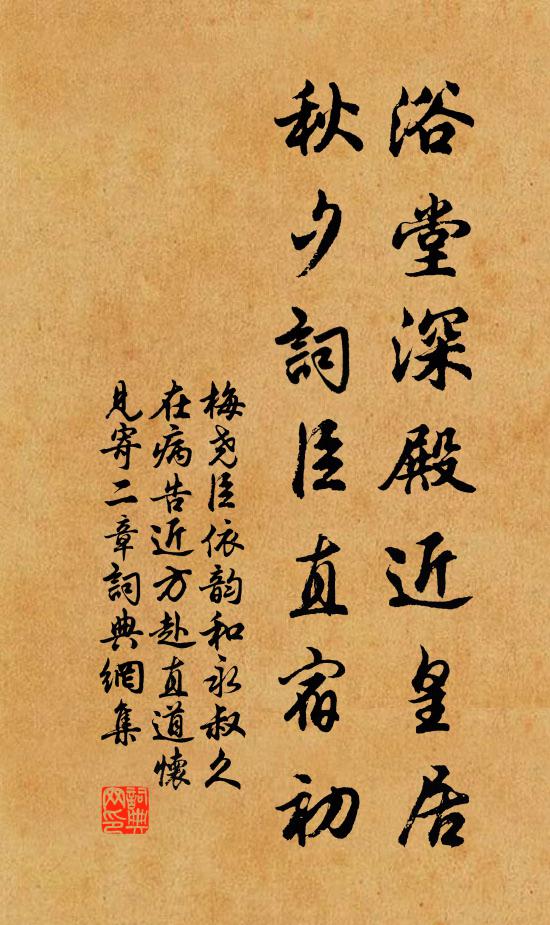 浴堂深殿近皇居
秋夕詞臣直宿初
梅尧臣依韵和永叔久
在病告近方赴直道懷
見寄二章詞典網集
詞典網印